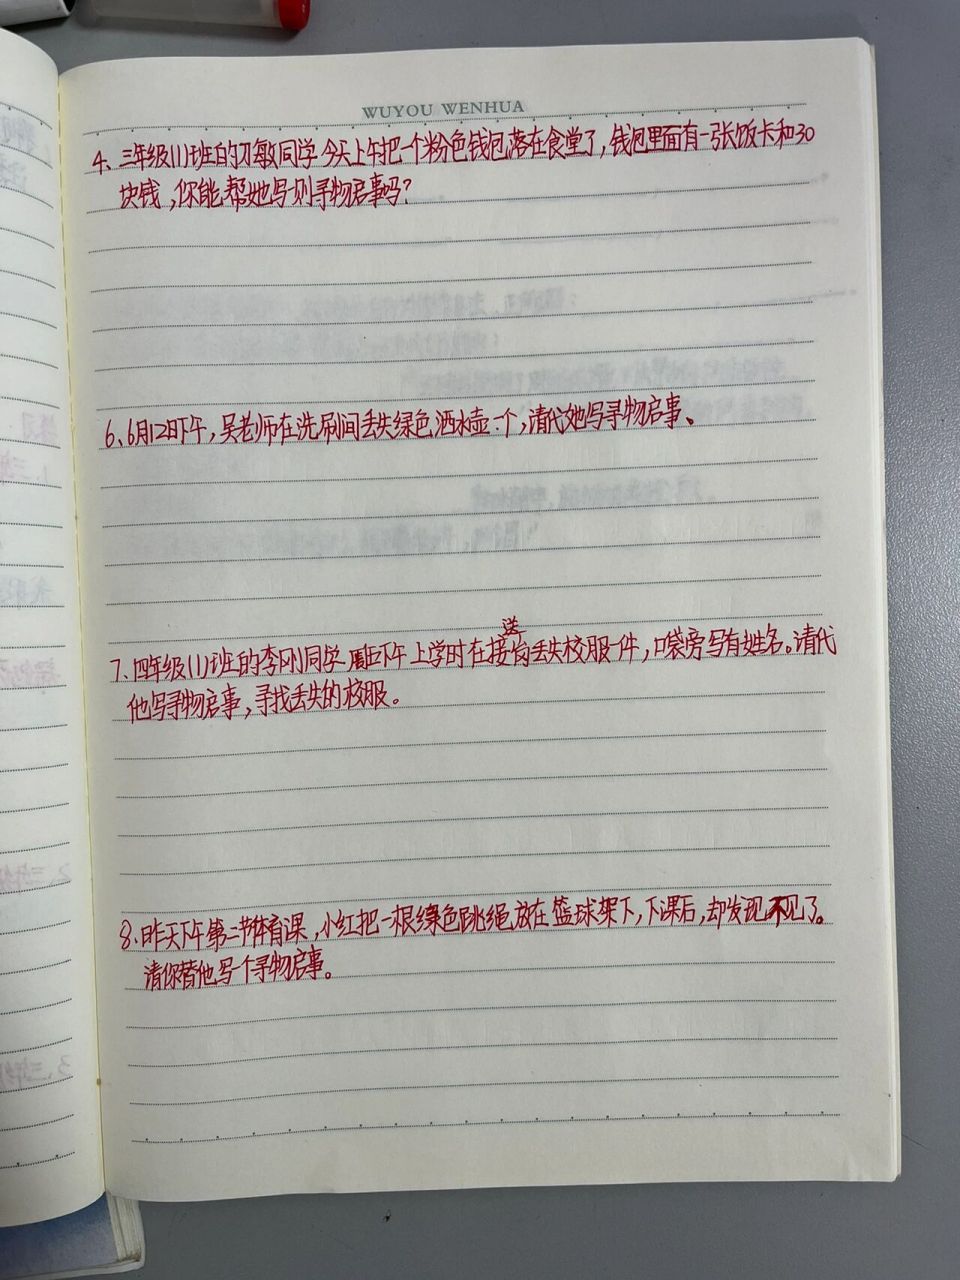 WUYOU WENHUA
4、三年级(1)班的刁敏同学今天上午把一个粉色钱包落在食堂了,钱包里面有一张饭卡和30
块钱,你能帮她写一则寻物启事吗?
6、6月12日下午,吴老师在洗刷间丢失绿色洒水壶一个,请代她写寻物启事、
送
7、四年级(1)班的李刚同学周二下午上学时在接岗丢失校服一件,口袋旁写有姓名。请代
他写寻物启事,寻找丢失的校服。
8、昨天下午第二节体育课,小红把一根绿色跳绳放在篮球架下,下课后,却发现不见了。
请你替他写个寻物启事。